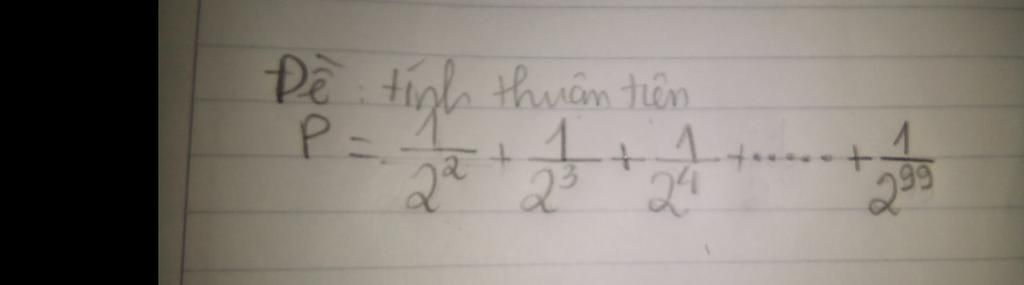 Đề: tính thuận tiện
P = 1/2² + 1/2³ + 1/2⁴ + ...... + 1/2⁹⁹